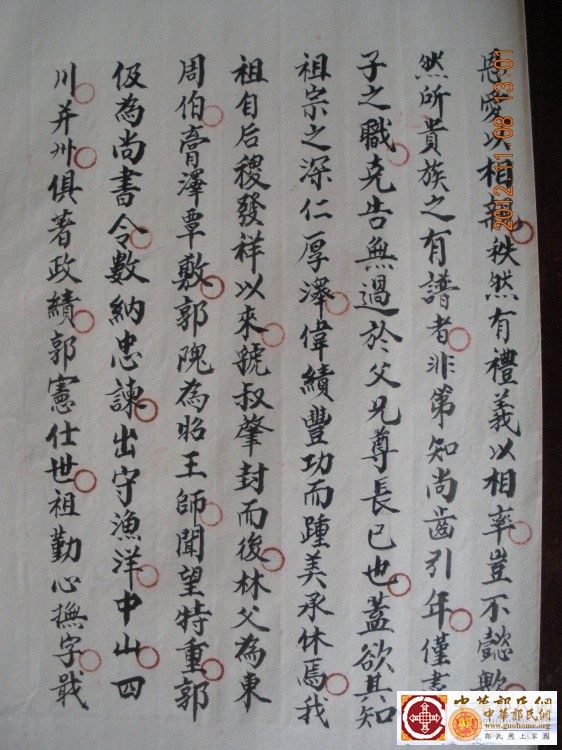 恩愛以相親秩然有禮義以相率豈不懿歟
然所貴族之有譜者非第知尚齒引年僅盡
子之職克告無過於父兄尊長已也蓋欲其知
祖宗之深仁厚澤偉績豐功而踵美承休焉我
祖自后稷發祥以來虢叔肇封而後林父為東
周伯膏澤覃敷郭隗為昭王師聞望特重郭
伋為尚書令數納忠諫出守漁洋中山四
川并州俱著政績郭憲仕世祖勤心撫字戢
2012 11 08 13:01
中華郭氏網
中華郭氏網
www.guohome.org
郭氏網上家園